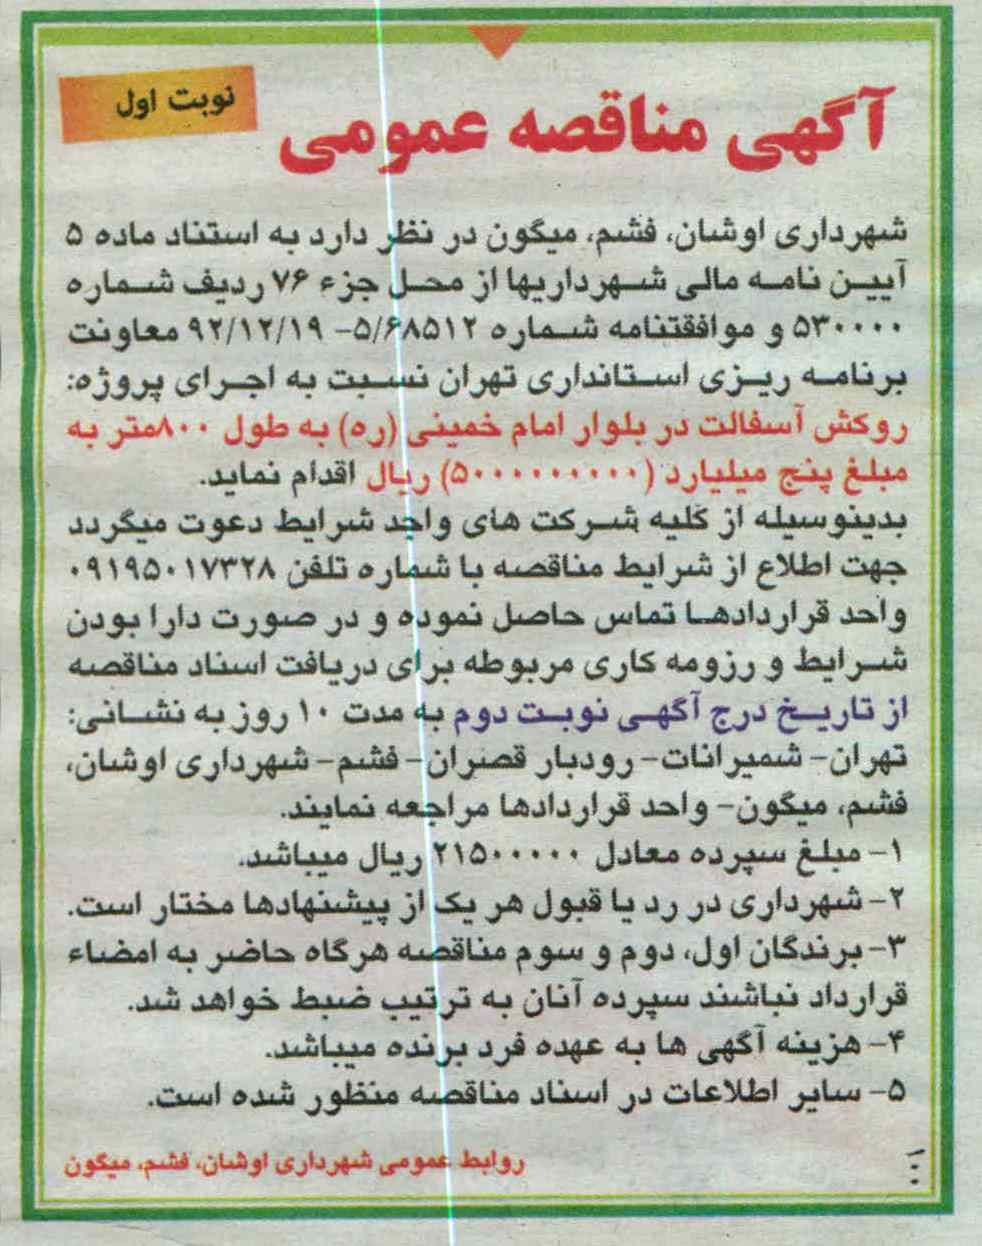 نوبت اول
آگهی مناقصه عمومی
شهرداری اوشان، فشم، میگون در نظر دارد به استناد ماده ۵
آیین نامه مالی شهرداریها از محل جزء ۷۶ ردیف شماره
۵۳۰۰۰۰ و موافقتنامه شماره ۵/۶۸۵۱۲- ۹۲/۱۲/۱۹ معاونت
برنامه ریزی استانداری تهران نسبت به اجرای پروژه:
روکش آسفالت در بلوار امام خمینی (ره) به طول ۸۰۰متر به
مبلغ پنج میلیارد (۵۰۰۰۰۰۰۰۰۰) ریال اقدام نماید.
بدینوسیله از کلیه شرکت های واجد شرایط دعوت میگردد
جهت اطلاع از شرایط مناقصه با شماره تلفن ۰۹۱۹۵۰۱۷۳۲۸
واحد قراردادها تماس حاصل نموده و در صورت دارا بودن
شرایط و رزومه کاری مربوطه برای دریافت اسناد مناقصه
از تاریخ درج آگهی نوبت دوم به مدت ۱۰ روز به نشانی:
تهران- شمیرانات- رودبار قصران- فشم- شهرداری اوشان،
فشم، میگون- واحد قراردادها مراجعه نمایند.
۱- مبلغ سپرده معادل ۲۱۵۰۰۰۰۰۰ ریال میباشد.
۲- شهرداری در رد یا قبول هر یک از پیشنهادها مختار است.
۳- برندگان اول، دوم و سوم مناقصه هرگاه حاضر به امضاء
قرارداد نباشند سپرده آنان به ترتیب ضبط خواهد شد.
۴- هزینه آگهی ها به عهده فرد برنده میباشد.
۵- سایر اطلاعات در اسناد مناقصه منظور شده است.
روابط عمومی شهرداری اوشان، فشم، میگون